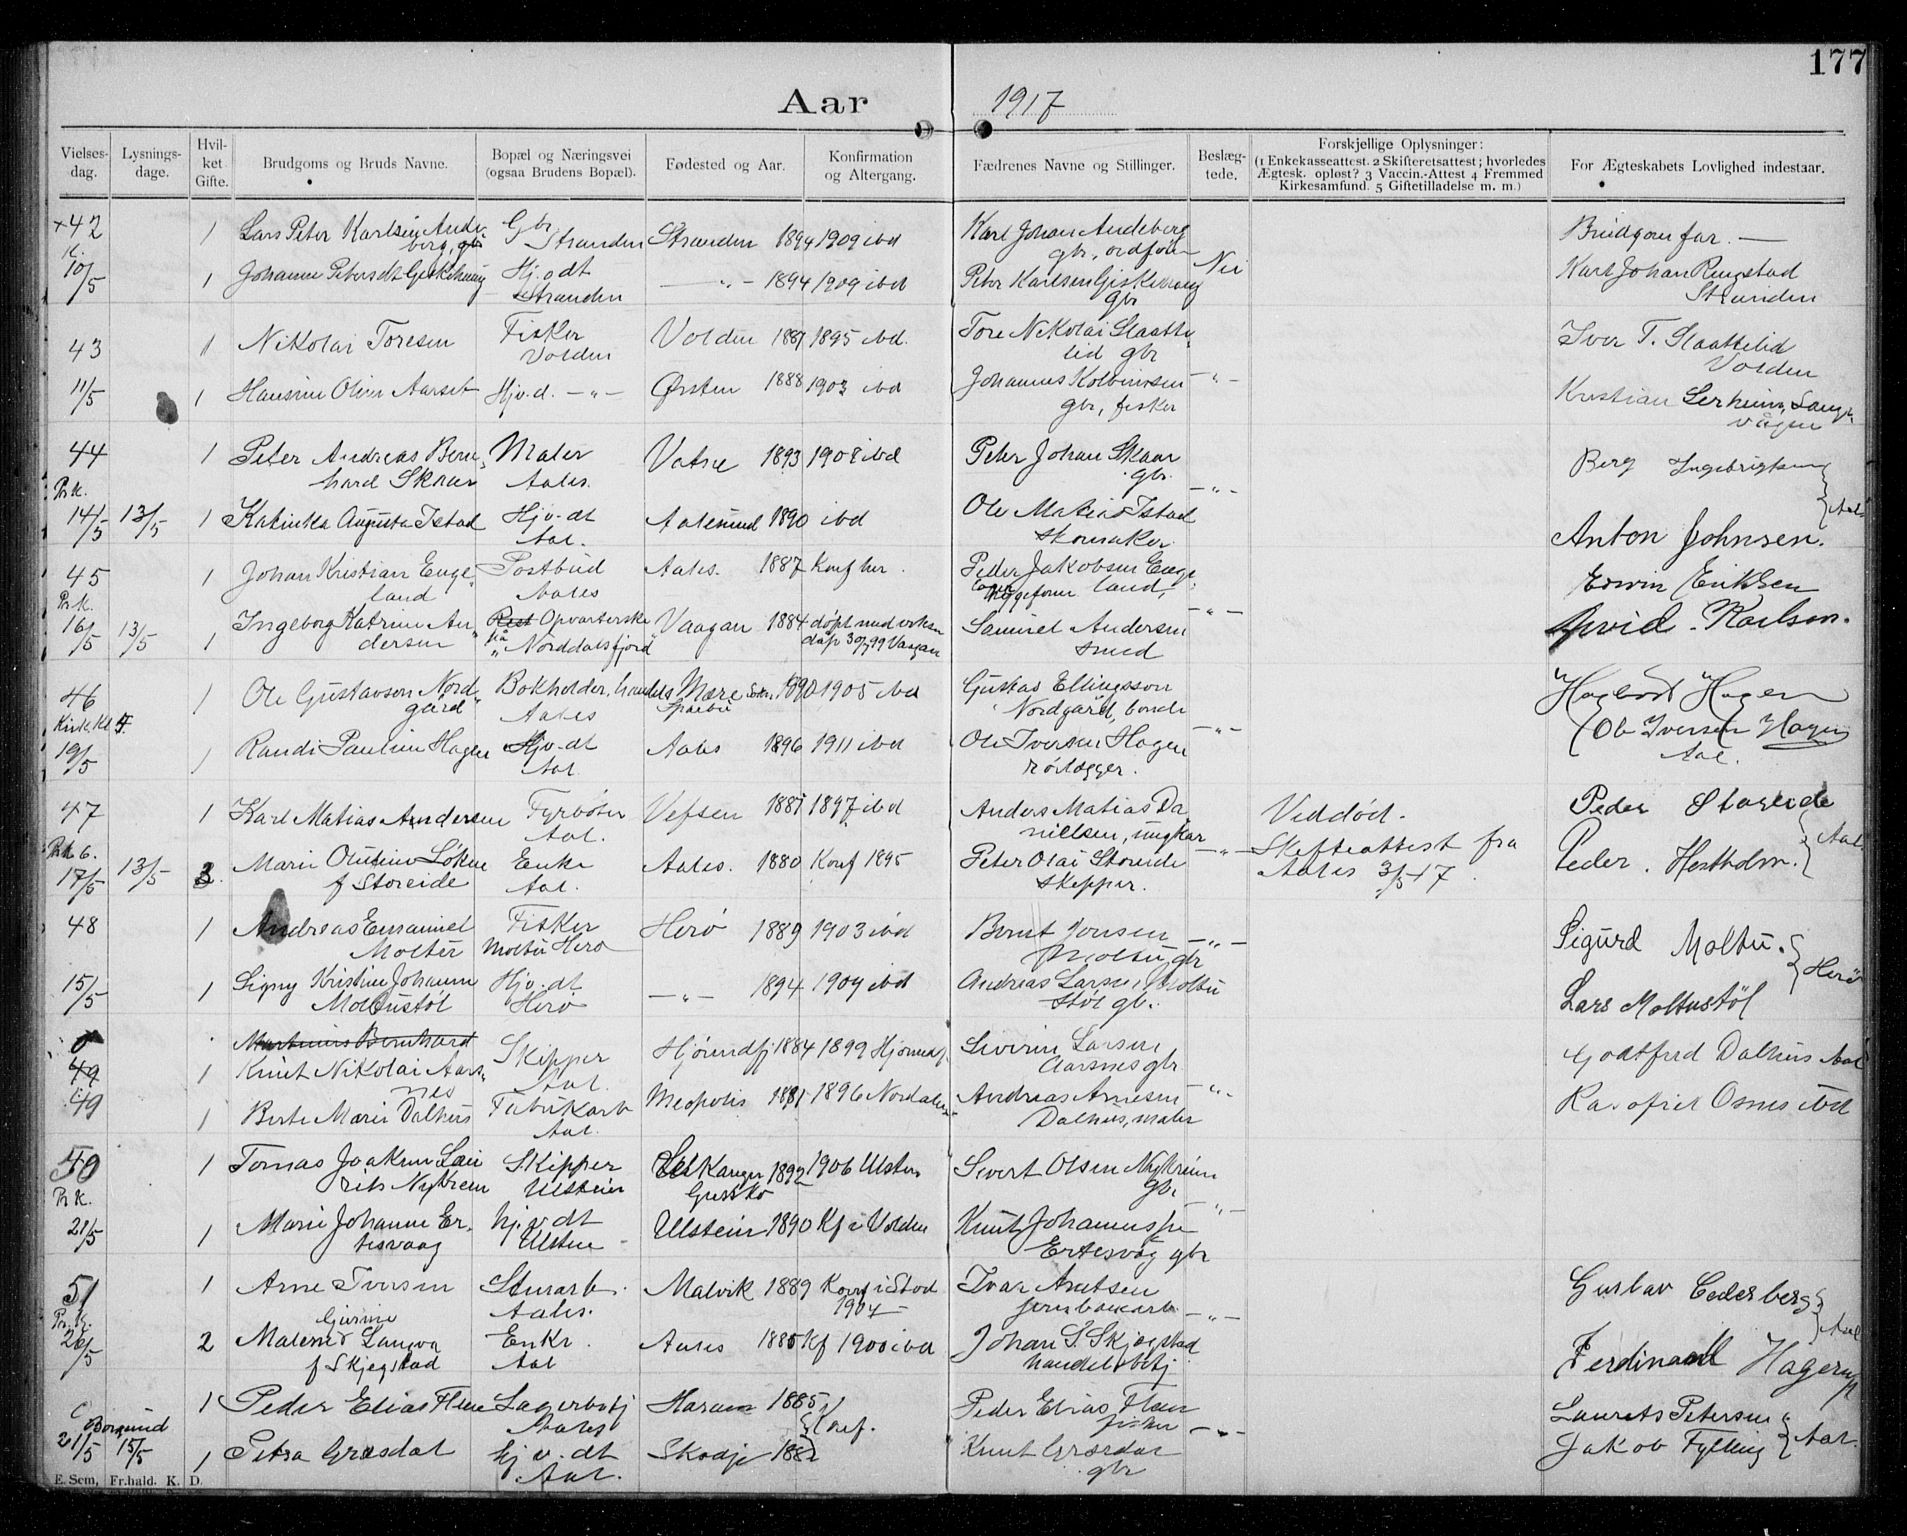 177
Aar 1917
Vielses-dag. Lysnings-dage. Hvil-ket Gifte. Brudgoms og Bruds Navne. Bopæl og Næringsvei (ogsaa Brudens Bopæl). Fødested og Aar. Konfirmation og Altergang. Fædrenes Navne og Stillinger. Beslæg-tede. Forskjellige Oplysninger: (1 Enkekasseattest. 2 Skifteretsattest; hvorledes Ægtesk. opløst? 3 Vaccin.-Attest 4 Fremmed Kirkesamfund. 5 Giftetilladelse m. m.) For Ægteskabets Lovlighed indestaar.
42 1 Lars Peter Karlsen Ande- Gbr Stranden Stranden 1894 1909 ibd Karl Johan Andeberg Brudgom far. —
berg, gbr gbr, ordfører
10/5 1 Johanne Petersdt Giskehaug Hj.v.dt — „ — 1894 1909 ibd Peter Karlsen Giskehaug Nei Karl Johan Ringstad
Stranden gbr Stranden
43 1 Nikolai Toresen Fisker Volden 1881 1895 ibd. Tore Nikolai Slaatte- Iver T. Slaattelid
Volden lid gbr Volden
11/5 1 Hansine Oline Aarset Hjv.d. — „ — Ørsten 1888 1903 ibd Johannes Kolbeinsen — „ — Kristian
gbr, fisker vågen
44 1 Peter Andreas Bern- Maler Vatne 1893 1908 ibd Peter Johan Skaar Berg Ingebrigtsen
Pr.k. hard Skaar Aales. gbr. — „ —
14/5 13/5 1 Katinka Augusta Istad Hjv.dt Aalesund 1890 ibd Ole Matias Istad Aal
Aal. skomaker Anton Johnsen.
45 1 Johan Kristian Enge- Postbud Aales. 1887 Konf her. Peder Jakobsen Enge- Erwin Eriksen
Pr.k. land Aales land,
16/5 13/5 1 Ingeborg Katrine An- Opvarterske Vaagan 1884 døpt med voksen Samuel Andersen — „ — Arvid Karlson.
dersen på „Norddalsfjord“ dåp 30/7 99 Vaagan smed
46 1 Ole Gustavson Nord- Bokholder, Mære 1890 1905 ibd Gustav Ellingsson Hagbart Hagen
gård Aales Sparbu Nordgård, bonde
Kirke kl 5 — „ — Ole Iversen Hagen
19/5 1 Randi Pauline Hagen Hjv.dt Aales 1896 1911 ibd Ole Iversen Hagen
Aal rörlægger. Aal.
47 1 Karl Matias Andersen Fyrbøter Vefsen 1881 1897 ibd Anders Matias Da- Veddød. Peder Storeide
Aal. nielsen, ungkar Aal
17/5 13/5 3. Marie Olufine Løken Enke Aales. 1880 Konf 1895 Peter Olai Storeide — „ — Skifteattest fra Peder. Hestholm.
f Storeide Aal. Skipper. Aales 3/5 17
48 1 Andreas Emanuel Fisker Herø 1889 1903 ibd Bernt Jonsen — „ — Sigurd Moltu.
Moltu Moltu Herø Moltu, gbr Herø
15/5 1 Signy Kristine Johanne Hjv.dt — „ — 1894 1909 ibd Andreas Larsen Moltu
Moltustøl Herø støl gbr. Lars Moltustøl
Martinius Bernhard
49 1 Knut Nikolai Aars- Skipper Hjørundfj 1884 1899 Hjørundf. Severin Larsen Godtfred Dalhus Aal
nes Aal. Aarsnes gbr
49 1 Berte Marie Dalhus Fabrikarb Meopolis 1881 1896 Nordalen Andreas Arnesen — „ — Osnes ibd
Aal. Dalhus, maler
50 1 Tomas Joakim Lau- Skipper Kanger 1892 1906 Ulsten Sivert Olsen Nykreim
Pr k. rits Nykreim Ulstein Gurskø gbr
21/5 1 Marie Johanne Er- hj.v.dt Ullstein 1890 Kf i Volden Knut Johannessen — „ —
tesvaag Ulsten Ertesvåg gbr
51 1 Arne Iversen Sturarb. Malvik 1889 Konf i Stod Ivar Arntsen Gustav Cederberg
Pr.k. Gurine Aales. 1904 jernbanearb — „ — Aal
26/5 2 Malene Langva Enke. Aales 1880 Kf 1900 ibd Johan S. Skjegstad
f Skjegstad Aal handelsbetj Ferdinand Hagerup
1 Peder Elias Flem Lagerbetj Haram 1885 Peder Elias Flem Laurits Petersen
Borgund Aales Konf. fisker — „ — Aal.
21/5 15/5 1 Petra Grasdal hj v.dt Skodje 1882 Knut Græsdal Jakob Fylling
Aal. gbr
E. Sem, Fr.hald. K. D.